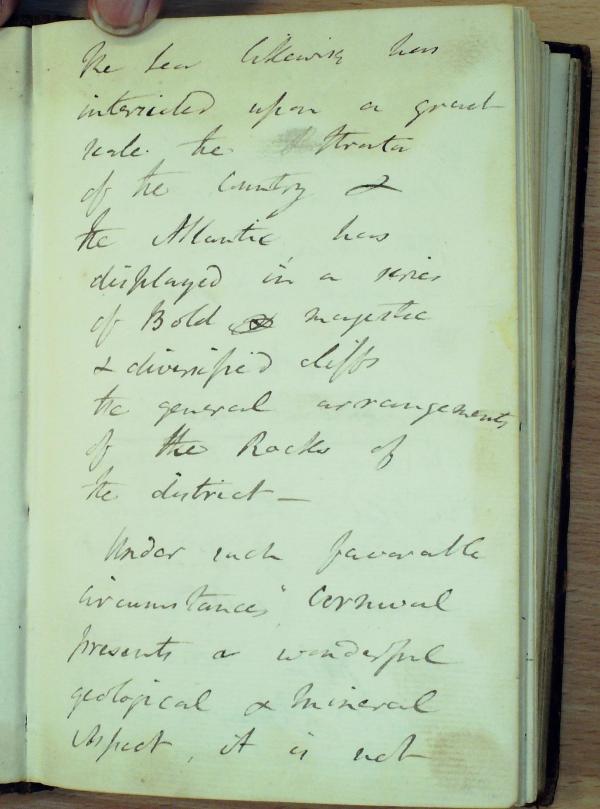 The sea likewise has
intersected upon a great
scale the Strata
of the Country &
the Atlantic has
displayed in a series
of Bold & majestic
& diversified cliffs
the general arrangements
of the Rocks of
the district —
Under such favorable
circumstances, Cornwal
presents a wonderful
geological & Mineral
Aspect, it is not